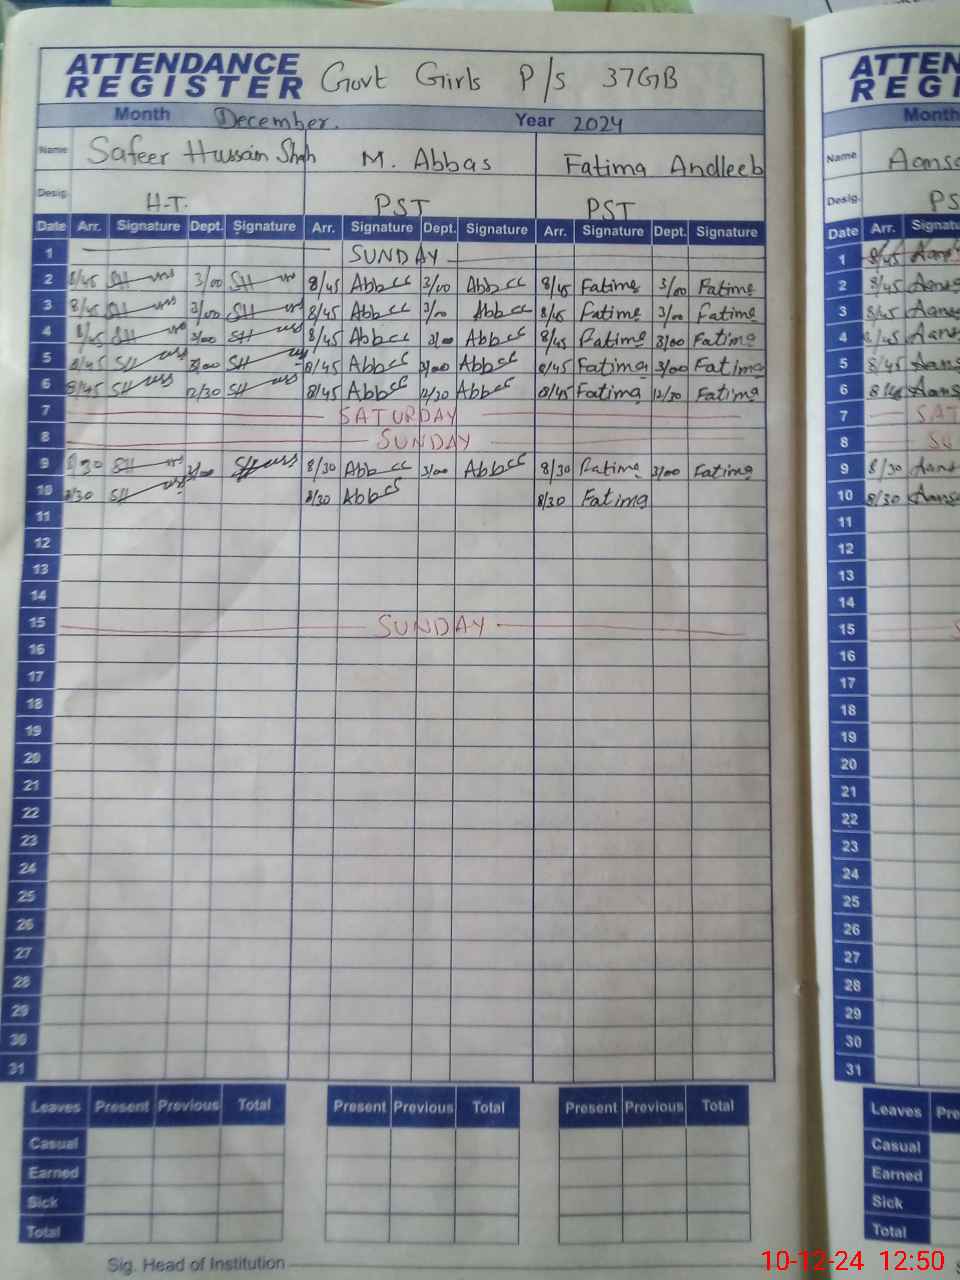 ATTENDANCE REGISTER Govt Girls P/S 37GB
Month December. Year 2024
Name Safeer Hussain Shah M. Abbas Fatima Andleeb
Desig. H-T. PST PST
Date Arr. Signature Dept. Signature Arr. Signature Dept. Signature Arr. Signature Dept. Signature
1 SUNDAY
2 8/45 SH 3/00 SH 8/45 Abbas 3/00 Abbas 8/45 Fatima 3/00 Fatima
3 8/45 SH 3/00 SH 8/45 Abbas 3/00 Abbas 8/45 Fatima 3/00 Fatima
4 8/45 SH 3/00 SH 8/45 Abbas 3/00 Abbas 8/45 Fatima 3/00 Fatima
5 8/45 SH 3/00 SH 8/45 Abbas 3/00 Abbas 8/45 Fatima 3/00 Fatima
6 8/45 SH 12/30 SH 8/45 Abbas 12/30 Abbas 8/45 Fatima 12/30 Fatima
7 SATURDAY
8 SUNDAY
9 8/30 SH 3/00 SH 8/30 Abbas 3/00 Abbas 8/30 Fatima 3/00 Fatima
10 8/30 SH 8/30 Abbas 8/30 Fatima
11
12
13
14
15 SUNDAY
16
17
18
19
20
21
22
23
24
25
26
27
28
29
30
31
Leaves Present Previous Total Present Previous Total Present Previous Total
Casual
Earned
Sick
Total
Sig. Head of Institution
ATTEN
REGI
Month
Name
Desig. PS
Date Arr. Signatu
1 8/45
2 8/45
3 8/45
4 8/45
5 8/45
6 8/45
7 SAT
8 SU
9 8/30
10 8/30
11
12
13
14
15 S
16
17
18
19
20
21
22
23
24
25
26
27
28
29
30
31
Leaves Pre
Casual
Earned
Sick
Total
10-12-24 12:50